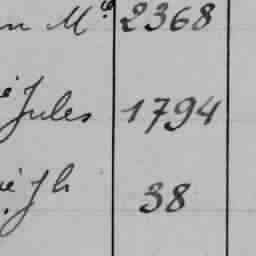 n Mce 2368
é Jules 1794
ié Jh 38